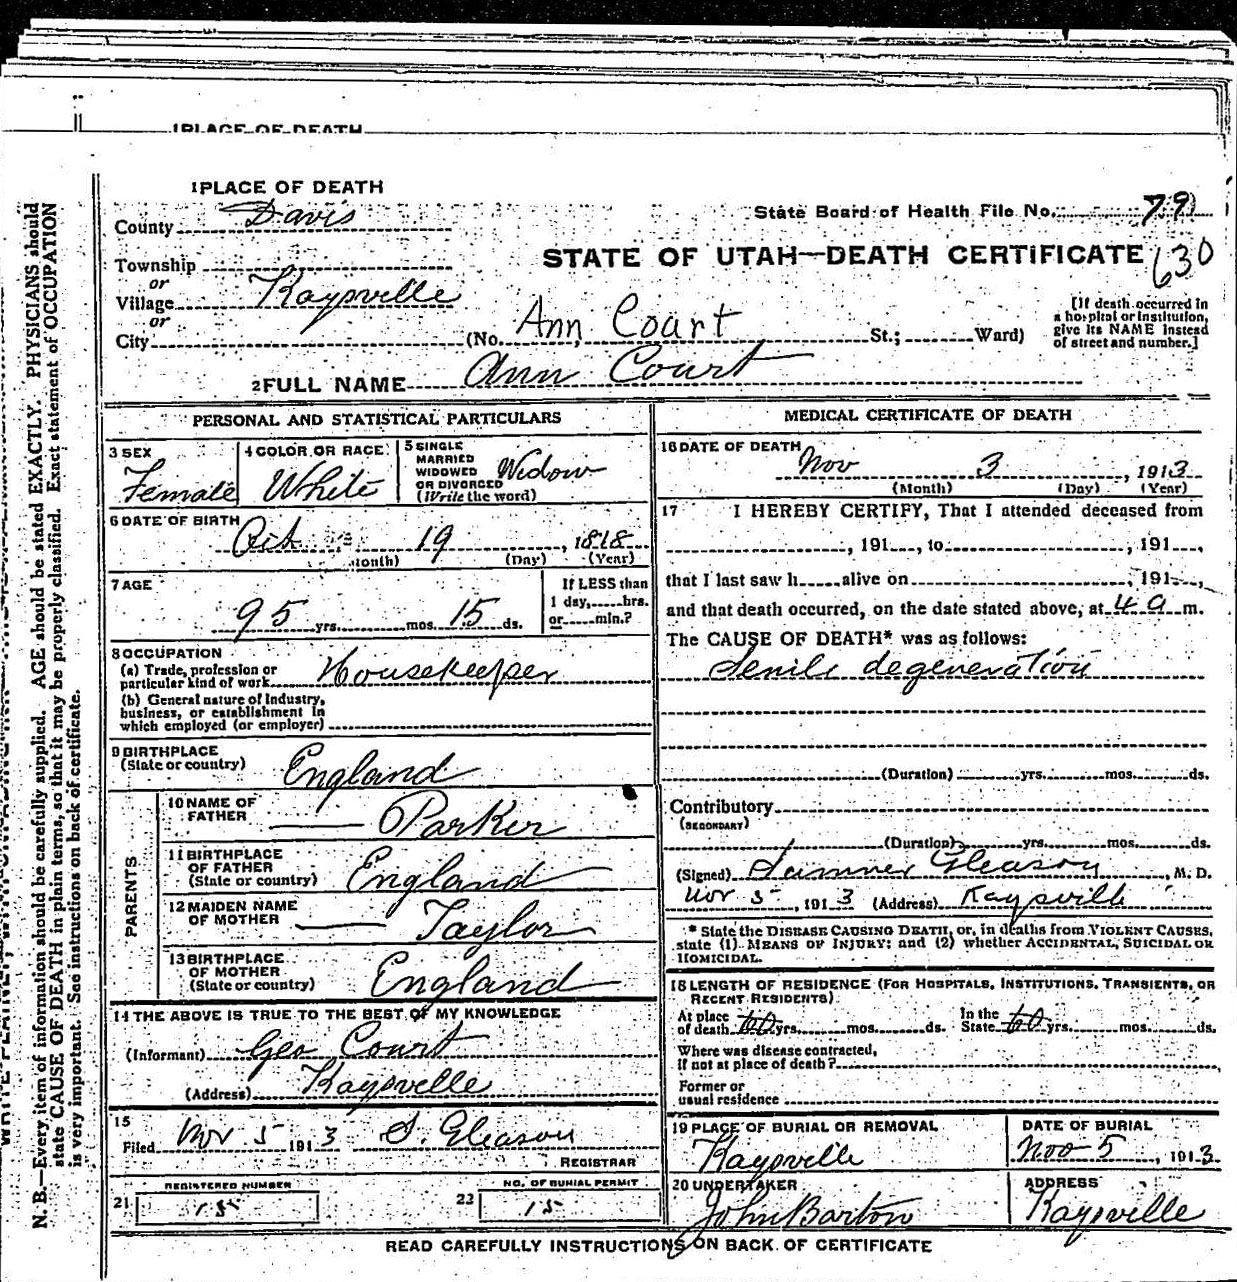 1 PLACE OF DEATH
1 PLACE OF DEATH
County Davis
State Board of Health File No. 79
Township
or
STATE OF UTAH—DEATH CERTIFICATE 630
Village Kaysville
or
City (No. Ann Court St.; Ward)
[If death occurred in
a hospital or institution,
give its NAME instead
of street and number.]
2 FULL NAME Ann Court
PERSONAL AND STATISTICAL PARTICULARS
3 SEX
Female
4 COLOR OR RACE
White
5 SINGLE
MARRIED
WIDOWED
OR DIVORCED
(Write the word)
Widow
6 DATE OF BIRTH
Oct 19, 1818
(Month) (Day) (Year)
7 AGE
95 yrs. mos. 15 ds.
If LESS than
1 day, hrs.
or min.?
8 OCCUPATION
(a) Trade, profession or
particular kind of work Housekeeper
(b) General nature of industry,
business, or establishment in
which employed (or employer)
9 BIRTHPLACE
(State or country) England
PARENTS
10 NAME OF
FATHER — Parker
11 BIRTHPLACE
OF FATHER
(State or country) England
12 MAIDEN NAME
OF MOTHER — Taylor
13 BIRTHPLACE
OF MOTHER
(State or country) England
14 THE ABOVE IS TRUE TO THE BEST OF MY KNOWLEDGE
(Informant) Geo Court
(Address) Kaysville
15
Filed Nov 5 1913 S. Gleason
REGISTRAR
21 REGISTERED NUMBER
15
23 NO. OF BURIAL PERMIT
15
MEDICAL CERTIFICATE OF DEATH
16 DATE OF DEATH
Nov 3, 1913
(Month) (Day) (Year)
17 I HEREBY CERTIFY, That I attended deceased from
, 191 , to , 191 ,
that I last saw h alive on , 191 ,
and that death occurred, on the date stated above, at 4 a m.
The CAUSE OF DEATH* was as follows:
Senile degeneration
(Duration) yrs. mos. ds.
Contributory
(SECONDARY)
(Duration) yrs. mos. ds.
(Signed) Sumner Gleason, M. D.
Nov 5, 1913 (Address) Kaysville
* State the DISEASE CAUSING DEATH, or, in deaths from VIOLENT CAUSES,
state (1) MEANS OF INJURY; and (2) whether ACCIDENTAL, SUICIDAL OR
HOMICIDAL.
18 LENGTH OF RESIDENCE (FOR HOSPITALS, INSTITUTIONS, TRANSIENTS, OR
RECENT RESIDENTS)
At place
of death 60 yrs. mos. ds.
In the
State 60 yrs. mos. ds.
Where was disease contracted,
if not at place of death?
Former or
usual residence
19 PLACE OF BURIAL OR REMOVAL
Kaysville
DATE OF BURIAL
Nov 5, 1913
20 UNDERTAKER
John Barton
ADDRESS
Kaysville
READ CAREFULLY INSTRUCTIONS ON BACK OF CERTIFICATE
N. B.—Every item of information should be carefully supplied. AGE should be stated EXACTLY. PHYSICIANS should
state CAUSE OF DEATH in plain terms, so that it may be properly classified. Exact statement of OCCUPATION
is very important. See instructions on back of certificate.